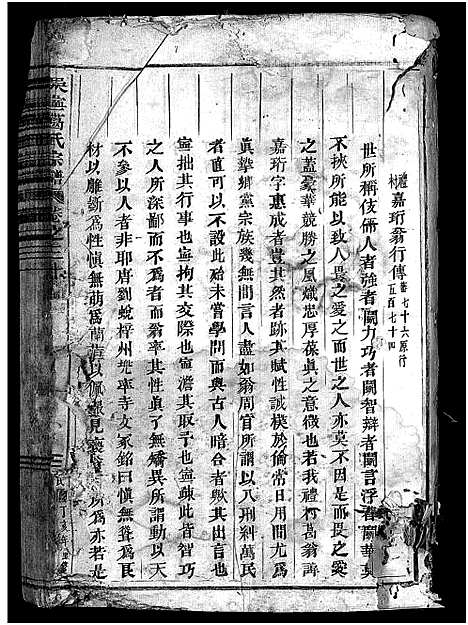 禮村嘉珩翁行傳舊七十六原行五百七十四
世所稱伎倆人者強者鬭力巧者鬭智辯者鬭言浮者鬭華莫
不挾所能以致人畏之愛之而世之人亦莫不因是而畏之愛
之蓋豪華競勝之風熾忠厚葆真之意微也若我禮村葛翁諱
嘉珩字惠成者豈其然者跡其賦性誠樸於倫常日用間尤爲
眞摯鄉黨宗族幾無間言人盡如翁周官所謂以八刑刹萬民
者直可以不設此殆未嘗學問而與古人暗合者歟其出言也
寧拙其行事也寧拘其交際也寧澹其于取也寧疎此皆智巧
之人所深鄙而不爲者而翁率其性眞了無矯異所謂動以天
不參以人者非耶唐劉蛻梓州兠率寺文冢銘曰愼無聳爲良
材以雕斲爲性愼無萌爲蘭茝以佩服見褻翁之所爲亦若是
吳寧葛氏宗譜